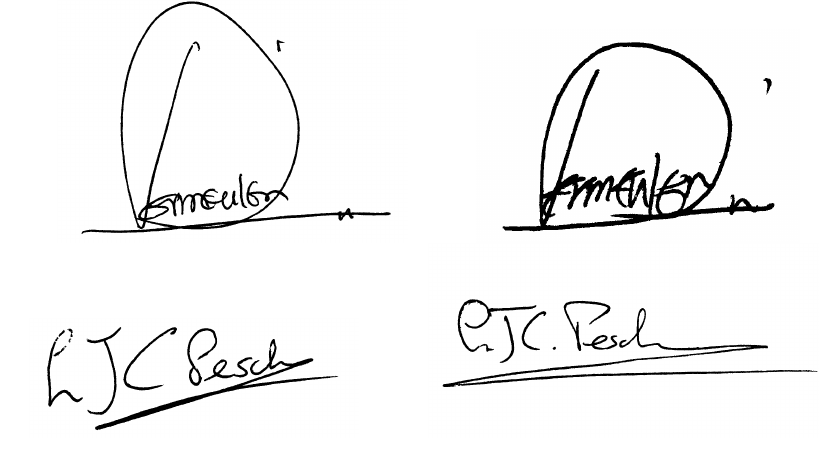 Vermeulen Vermeulen
L J C Pesch L. J C. Pesch